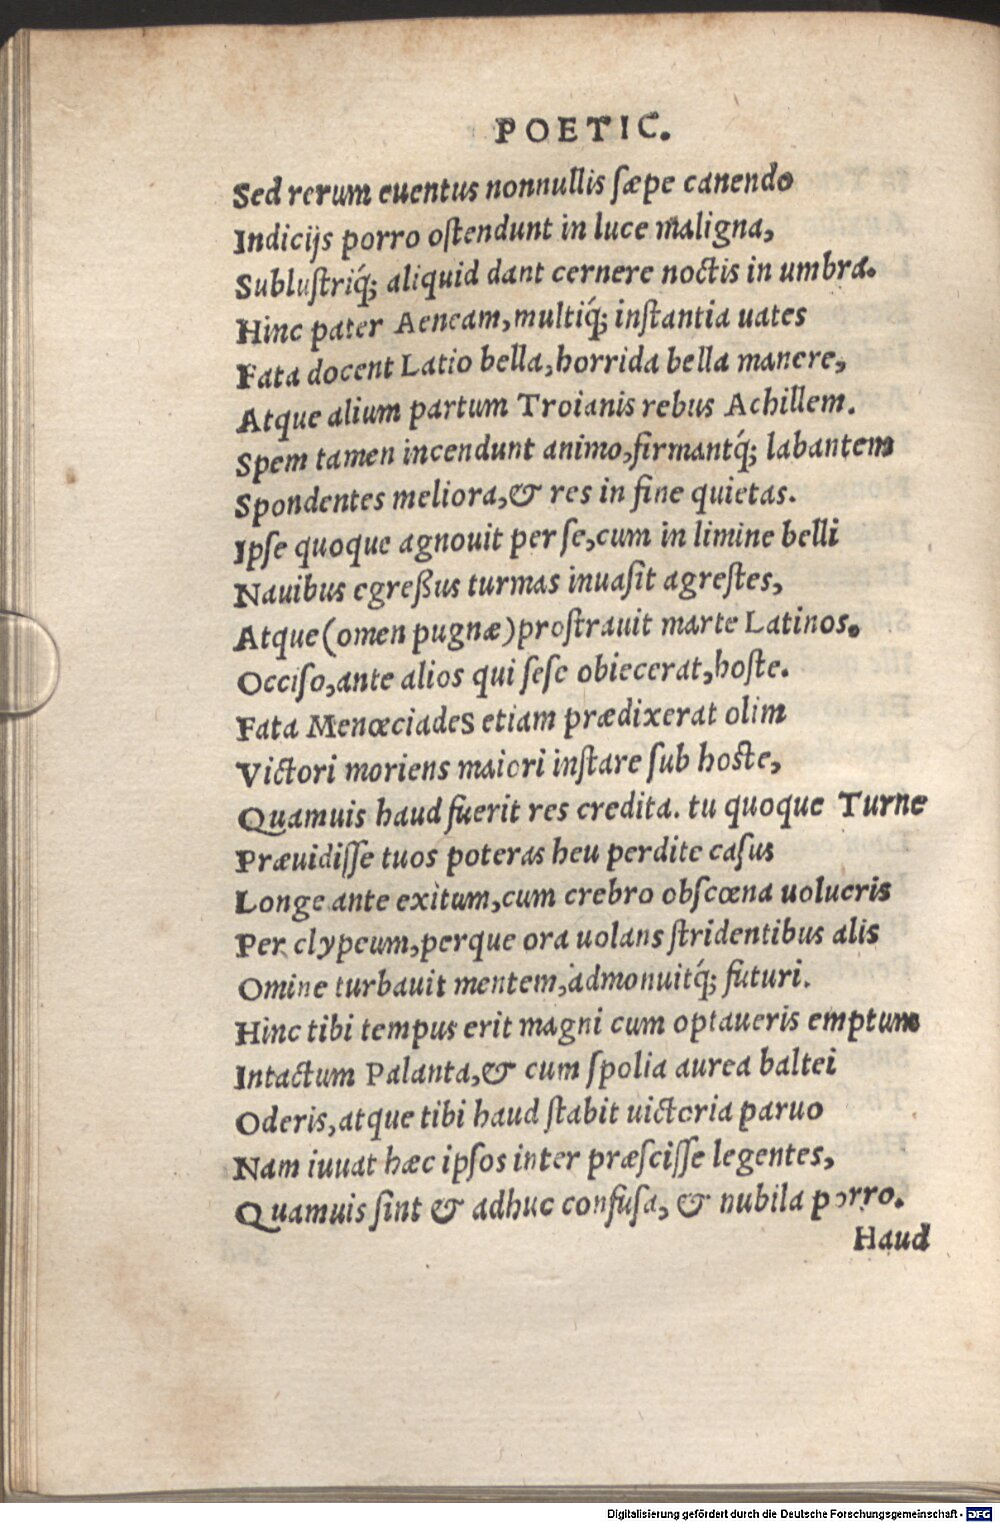 POETIC.
Sed rerum euentus nonnullis ſæpe canendo
Indicijs porro oſtendunt in luce maligna,
Subluſtriq́; aliquid dant cernere noctis in umbra.
Hinc pater Aeneam, multiq́; inſtantia uates
Fata docent Latio bella, horrida bella manere,
Atque alium partum Troianis rebus Achillem.
Spem tamen incendunt animo, firmantq́; labantem
Spondentes meliora, & res in fine quietas.
Ipſe quoque agnouit per ſe, cum in limine belli
Nauibus egreßus turmas inuaſit agreſtes,
Atque (omen pugnæ) proſtrauit marte Latinos.
Occiſo, ante alios qui ſeſe obiecerat, hoſte.
Fata Menœciades etiam prædixerat olim
Victori moriens maiori inſtare ſub hoſte,
Quamuis haud fuerit res credita. tu quoque Turne
Præuidiſſe tuos poteras heu perdite caſus
Longe ante exitum, cum crebro obſcœna uolucris
Per clypeum, perque ora uolans ſtridentibus alis
Omine turbauit mentem, admonuitq́; futuri.
Hinc tibi tempus erit magni cum optaueris emptum
Intactum Palanta, & cum ſpolia aurea baltei
Oderis, atque tibi haud ſtabit uictoria paruo
Nam iuuat hæc ipſos inter præſciſſe legentes,
Quamuis ſint & adhuc confuſa, & nubila porro.
Haud
Digitalisierung gefördert durch die Deutsche Forschungsgemeinschaft - DFG